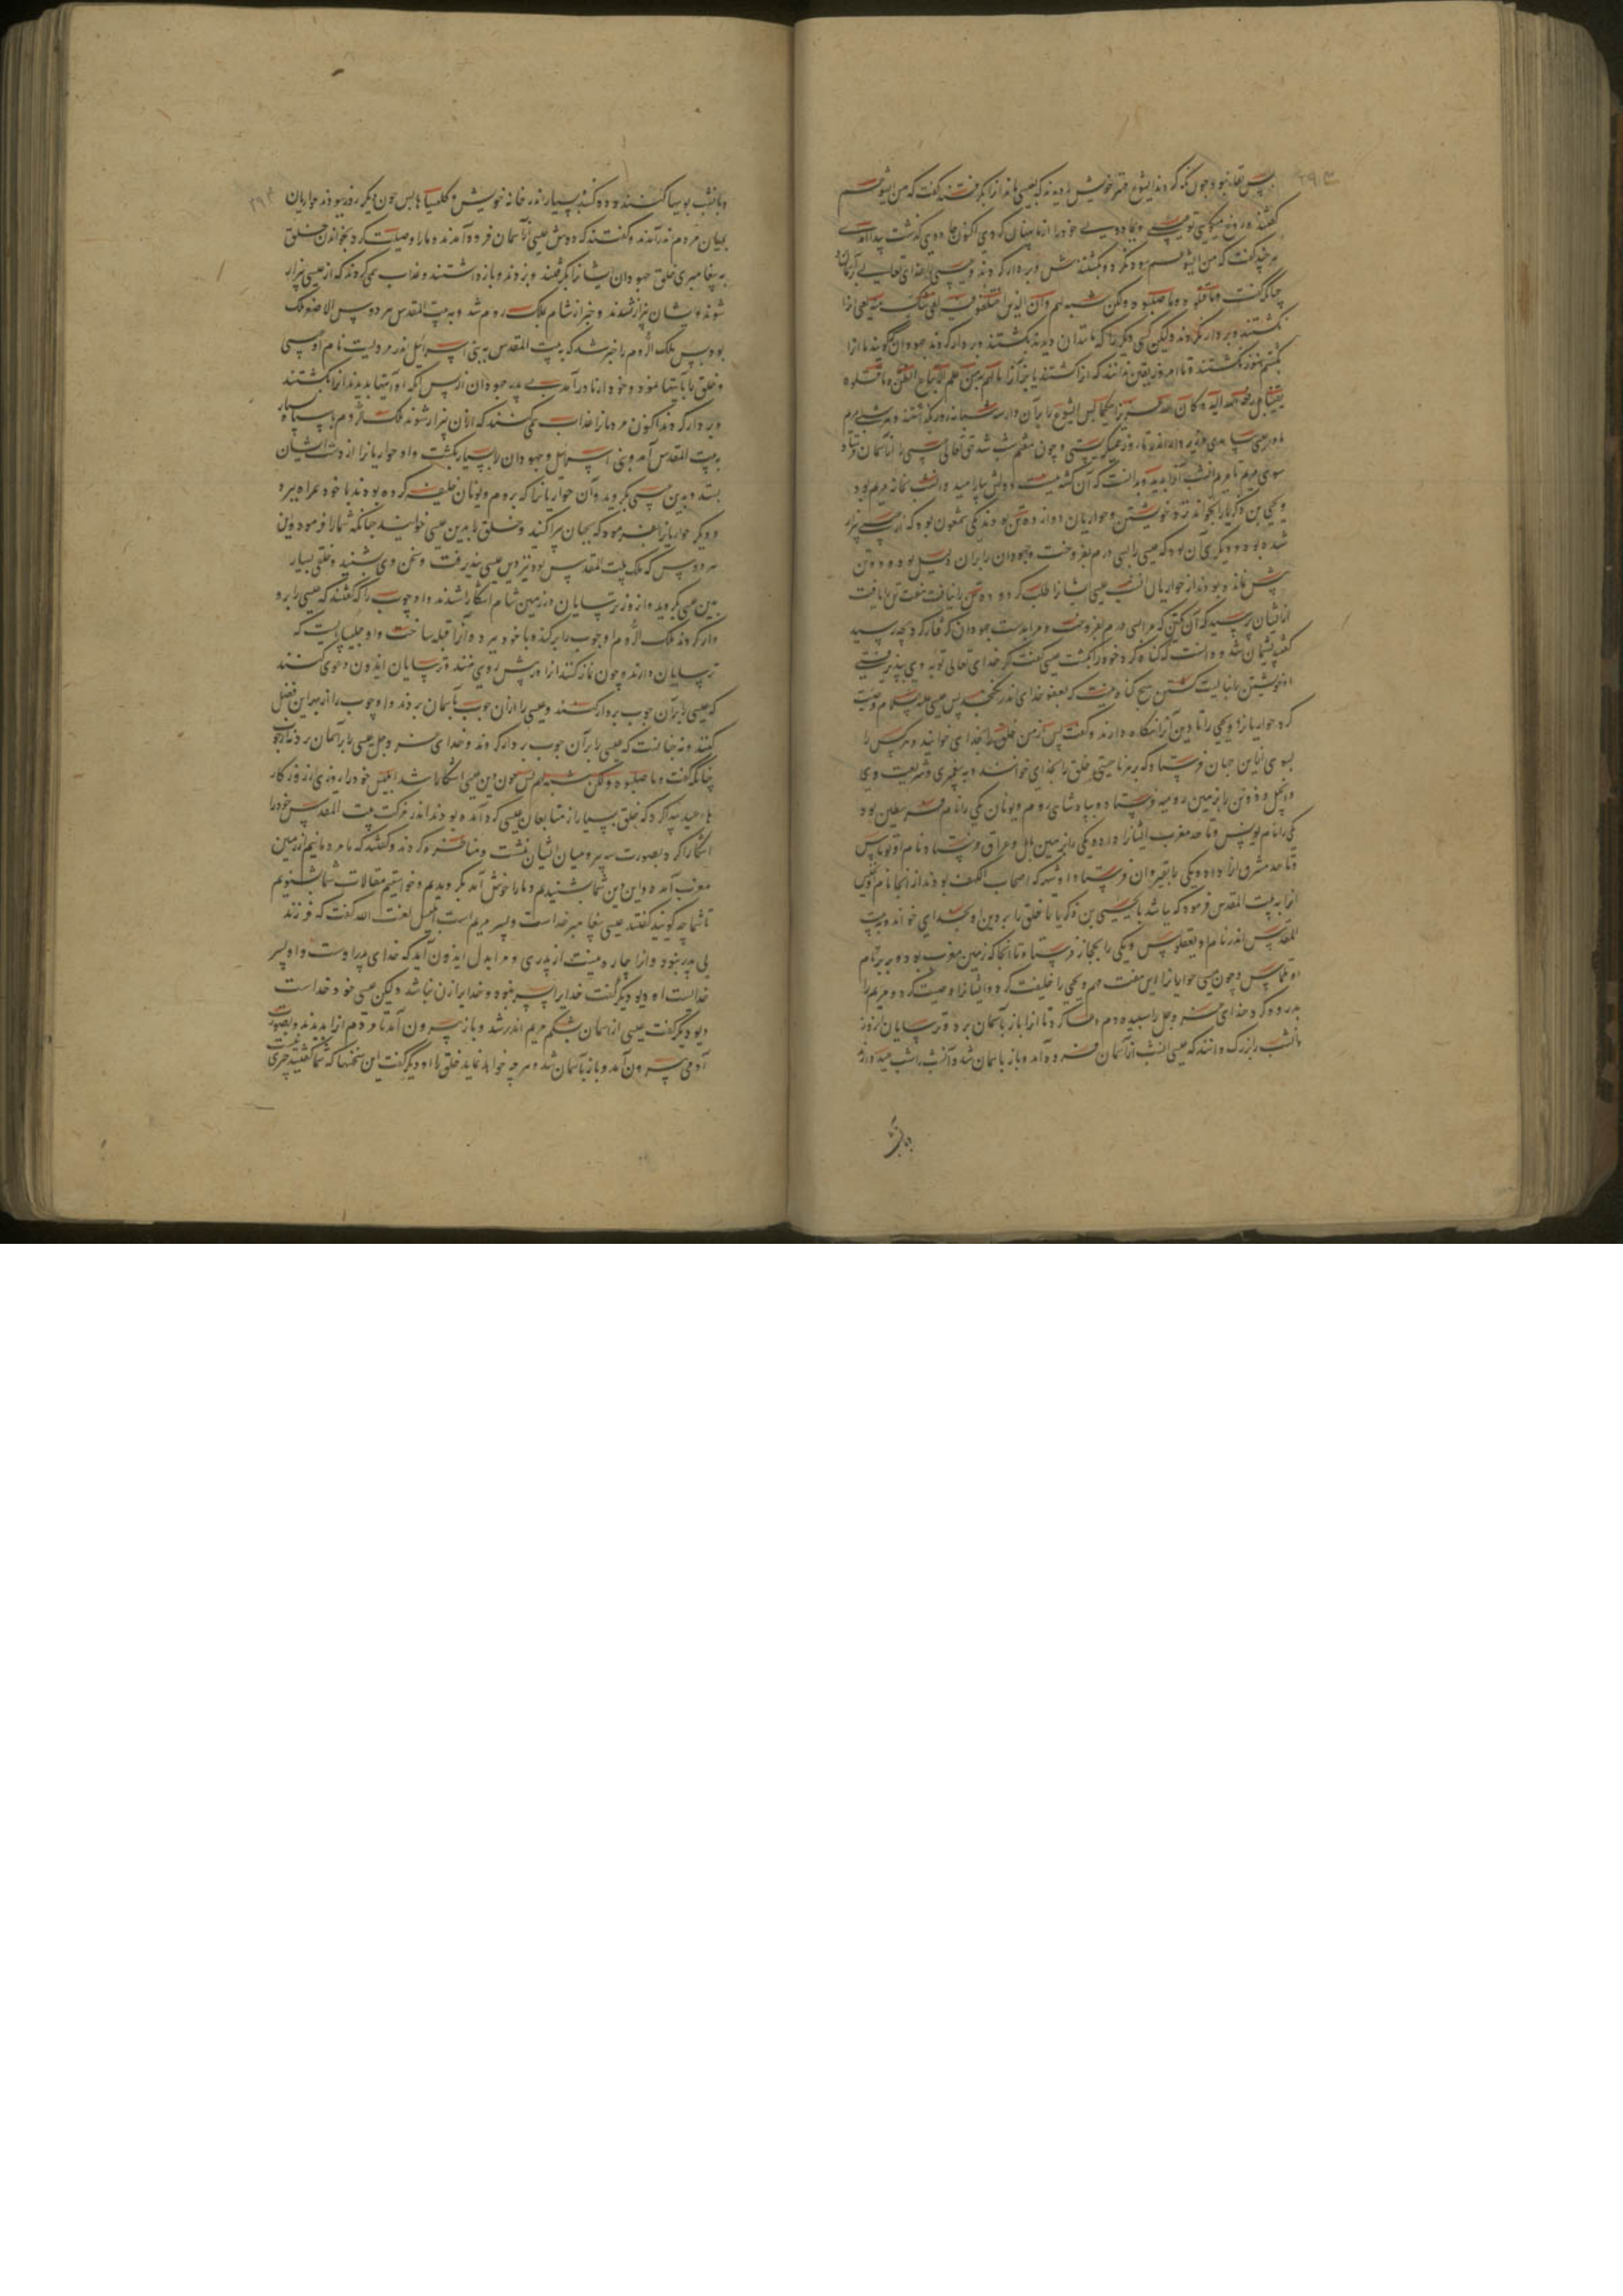 پس بقا نبود چون نگه کردند ایشوع مهتر خویش را دیدند که بعیسی ماند او را بگرفتند گفت که من ایشوعم
گفتند دروغ میگویی تو عیسی و بجادویی خود را از ما پنهان کردی اکنون جادوی گذشت پیدا آمدی
هر چند گفت که من ایشوعم سود نکرد و بکشتندش و بر دار کردند و عیسی را خدای تعالی بآسمان
چنانکه گفت وما قتلوه وما صلبوه ولکن شبه لهم وان الذین اختلفوا فیه لفی شک منه یعنی او را
نکشتند و بر دار نکردند ولیکن کسی دیگر را که مانند آن دیدند بکشتند و بر دار کردند جهودان گویند ما او را
بکشتیم هنوز نکشتند و تا امروز بیقین ندانند که او را کشتند یا نه ما لهم به من علم الا اتباع الظن وما قتلوه
یقینا بل رفعه الله الیه وکان الله عزیزا حکیما پس ایشوع را بر آن دار هفت شبانروز بگذاشتند و هر شب مریم
مادر عیسی بیامدی و زیر دار تا روز همی گریستی و چون هفتم شب شد حق تعالی عیسی را از آسمان فرستاد
سوی مریم تا مریم آنشب او را بدید و بدانست که آن کشته نیست و دلش بیارامید و آنشب بخانه مریم بود
و یحیی بن زکریا را بخواند نزد خویشتن و حواریان دوازده تن بودند یکی شمعون بود که از عیسی بیزار
شده بود و دیگری آن بود که عیسی را بسی درم بفروخت و جهودان را بر آن دلیل بود و دو تن
پیش نمانده بودند از حواریان آنشب عیسی ایشانرا طلب کرد و ده تن را نیافت هفت تن را یافت
از ایشان پرسید که آن یکتن که مرا بسی درم بفروخت و مرا بدست جهودان گرفتار کرد بچه رسید
گفتند پشیمان شد و دانست که گناه کرد خود را بکشت عیسی گفت اگر خدای تعالی توبه وی بپذیرفتی
او خویشتن را نبایست کشتن هیچ گناه نیست که بعفو خدای اندر نگنجد پس عیسی علیه السلام وصیت
کرد حواریانرا و یحیی را تا دین او را نگاه دارند و گفت پس از من خلق را بخدای خوانید و هر کس را
بسوی از این جهان فرستاد که بهر ناحیتی خلق را بخدای خوانند و به پیغمبری و شریعت وی
و انجیل و دو تن را بزمین رومیه فرستاد و بپادشاهی روم و یونان یکی را نام فطرس بود
یکی را نام بولس و تا حد مغرب ایشانرا داد و یکی را بزمین بابل و عراق فرستاد و نام او توماس
و تا حد مشرق او را داد و یکی را بقیروان فرستاد و او شهر که اصحاب الکهف بودند از آنجا نام
او را به بیت المقدس فرمود که بباشد با یحیی بن زکریا تا خلق را بر دین او بخدای خواند و به بیت
المقدس اندر نام او یعقوبس و یکی را بحجاز فرستاد و تا آنجا که زمین مغرب بود و بربر نام
او تلماس و چون عیسی حواریانرا این هفت مرد و یحیی را خلیفت کرد و ایشانرا وصیت کرد و مریم را
بدرود کرد خدای عز و جل را سپیده دم دعا کرد تا او را باز بآسمان برد و ترسایان امروز
آنشب را بزرگ دانند که عیسی آنشب از آسمان فرود آمد و باز بآسمان شد و آنشب را شب عید دارند
و بآنشب
و بآنشب بویها کنند و دود کنند بسیار اندر خانه خویش و کلیسیاها پس چون دیگر روز ببود حواریان
بمیان مردم اندر آمدند و گفتند که دوش عیسی از آسمان فرود آمدند و ما را وصیت کرد بخواندن خلق
به پیغامبری خلق جهودان ایشانرا بگرفتند و بزدند و باز داشتند و عذاب همی کردند که از عیسی بیزار
شوند و ایشان بیزار نشدند و خبر از شام بملک روم شد و به بیت المقدس هردوس الاصغر ملک
بود پس ملک الروم را خبر شد که به بیت المقدس به بنی اسرائیل اندر مردیست نام او عیسی
و خلق را بآیتها نمود و خود از مادر آمد بی پدر جهودان از پس آنکه او آیتها بدیدند او را بکشتند
و بر دار کردند اکنون مردمانرا عذاب همی کنند که از آن بیزار شوند ملک الروم با سپاه بسیار
به بیت المقدس آمد و بنی اسرائیل و جهودان را بسیار بکشت و او حواریانرا از دست ایشان
بستد و بدین عیسی بگروید و آن حواریانرا که بروم و یونان خلیفه کرده بودند با خود همراه ببرد
و دیگر حواریانرا بفرمود که بجهان پراکنید و خلق را بدین عیسی خوانید چنانکه شما را فرموده اند
هردوس که ملک بیت المقدس بود نیز دین عیسی بپذیرفت و سخن وی شنید و خلقی بسیار
بدین عیسی گروید و آنروز ترسایان در زمین شام آشکارا شدند و او چوب را که گفتند که عیسی را بر او
دار کردند ملک الروم او چوب را برکند و با خود ببرد و آنرا قبله ساخت و او چلیپایست که
ترسایان دارند و چون نماز کنند او را در پیش روی نهند و ترسایان ایدون دعوی کنند
که عیسی را بر آن چوب بر دار کشتند و عیسی را از آن چوب بآسمان بردند و او چوب را از بهر این فضل
کنند و نه چنانست که عیسی را بر آن چوب بر دار کردند و خدای عز و جل عیسی را بر آسمان برد
چنانکه گفت وما صلبوه ولکن شبه لهم پس چون دین عیسی آشکارا شد ابلیس خود را روزی از روزگار
ها عید پیدا کرد که خلق بسیار از متابعان عیسی گرد آمده بودند اندر مزکت بیت المقدس خود را
آشکارا کرد بصورت سه پیر و میان ایشان نشست و مناظره کردند و گفتند که ما مردمانیم از زمین
مغرب آمده و این دین شما بشنیدیم و ما را خوش آمد بگرویدیم و خواستیم مقالات شما بشنویم
تا شما چه گویید گفتند عیسی پیغامبر خداست و پسر مریم است ابلیس لعنت الله گفت که فرزند
بی پدر نبود و او را چاره نیست از پدری و مرا بدل ایدون آید که خدای پدر اوست و او پسر
خدایست او دیو دیگر گفت خدا را پسر نبود و خدا را زن نباشد ولیکن عیسی خود خداست
دیو دیگر گفت عیسی از آسمان بشکم مریم اندر شد و باز بیرون آمد تا مردم او را بدیدند و بصورت
آدمی بیرون آمد و باز بآسمان شد و هر چه خواهد نماید خلق را او دیگر گفت این سخنها که شما گفتید چیزی نیست